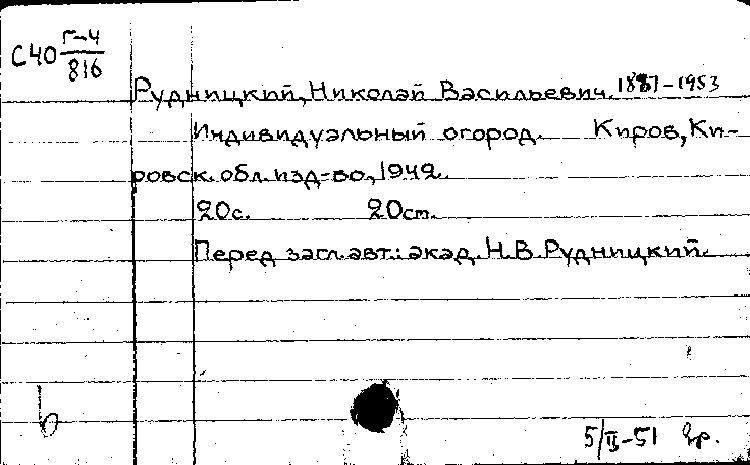 С40 Г-4/816
Рудницкий, Николай Васильевич. 1887-1953
Индивидуальный огород. Киров, Ки-
ровск. обл. изд-во, 1942.
20с. 20см.
Перед загл. авт.: акад. Н.В. Рудницкий.
b
5/II-51